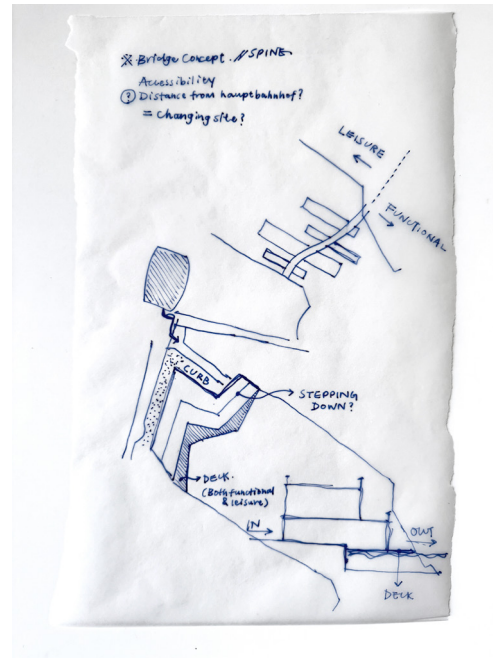 ※ Bridge Concept. // SPINE
Accessibility
? Distance from hauptbahnhof?
= Changing site?
LEISURE
FUNCTIONAL
CURB
STEPPING
DOWN?
DECK.
(Both functional
& leisure)
IN
OUT
DECK